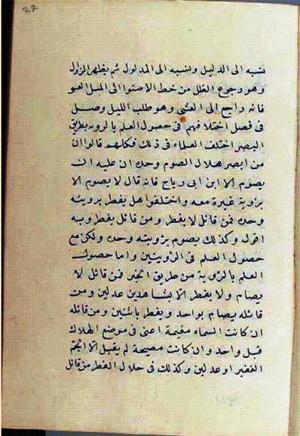 نسبه الى الدليل ونسبه الى المدلول ثم يظهر المدلول
وهو رجوع الظل من خط الاستوا الى الميل الغو
فانه راجع الى العشى وهو طلب الليل وصل
فى فصل اختلافهم فى حصول العلم بالروية بطريق
البصر اختلف العلماء فى ذلك فكلهم قالوا ان
من ابصر هلال الصوم وحده ان عليه ان
يصوم الا ابن ابى رباح فانه قال لا يصوم الا
برؤية غيره معه واختلفوا هل يفطر برويته
وحده فمن قائل لا يفطر ومن قائل يفطر وبه
اقول وكذلك يصوم برويته وحده ولكن مع
حصول العلم فى الرؤيتين واما حصول
العلم بالروية من طريق الخبر فمن قائل لا
يصام ولا يفطر الا بشاهدين عدلين ومن
قائل يصام بواحد ويفطر باثنين ومن قائل
ان كانت السماء مغيمة اعنى فى موضع الهلال
قبل واحد وان كانت مصحية لم يقبل الا الجم
الغفير او عدلين وكذلك فى هلال الفطر من قائل